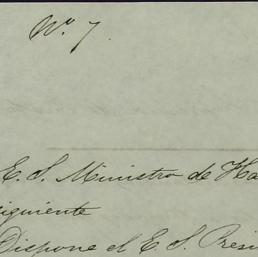 No. 7.
E. S. Ministro de Ha
siguiente
Dispone el E. S. Presi